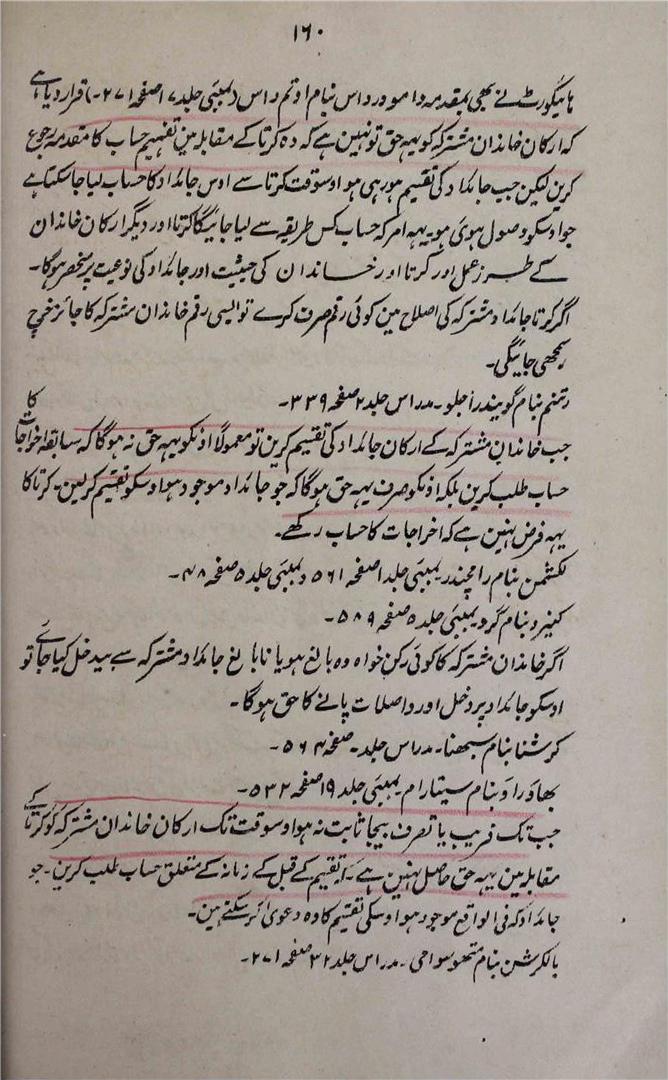 ۱۶۰
ہائیکورٹ نے بھی بمقدمہ دامودرداس بنام اوتم داس (بمبئی جلد ۱۷ صفحہ ۲۷۱-) قرار دیا ہے
کہ ارکان خاندان مشترکہ کو یہہ حق تو نہین ہے کہ وہ کرتا کے مقابلہ مین تفہیم حساب کا مقدمہ رجوع
کرین لیکن جب جائداد کی تقسیم ہو رہی ہو اوسوقت کرتا سے اوس جائداد کا حساب لیا جا سکتا ہے
جو اوسکو وصول ہوئی ہو۔ یہہ امر کہ حساب کس طریقہ سے لیا جائیگا کرتا اور دیگر ارکان خاندان
کے طرز عمل اور کرتا اور خاندان کی حیثیت اور جائداد کی نوعیت پر منحصر ہوگا۔
اگر کرتا جائداد مشترکہ کی اصلاح مین کوئی رقم صرف کرے تو ایسی رقم خاندان مشترکہ کا جائز خرچ
سمجھی جائیگی۔
رتنم بنام گوبیندراجلو۔ مدراس جلد ۲ صفحہ ۳۳۹۔
جب خاندان مشترکہ کے ارکان جائداد کی تقسیم کرین تو معمولاً اونکو یہہ حق نہ ہوگا کہ سابقہ اخراجات کا
حساب طلب کرین بلکہ اونکو صرف یہہ حق ہوگا کہ جو جائداد موجود ہو اوسکو تقسیم کرلین۔ کرتا کا
یہہ فرض نہین ہے کہ اخراجات کا حساب رکھے۔
لکشمن بنام رامچندر بمبئی جلد ۱ صفحہ ۵۶۱ و بمبئی جلد ۵ صفحہ ۴۸۔
بنام گرو بمبئی جلد ۵ صفحہ ۵۸۹۔
اگر خاندان مشترکہ کا کوئی رکن خواہ وہ بالغ ہو یا نابالغ جائداد مشترکہ سے بیدخل کیا جائے تو
اوسکو جائداد پر دخل اور واصلات پانے کا حق ہوگا۔
کرشنا بنام سبھنا۔ مدراس جلد۔ صفحہ ۵۶۴۔
بھاؤ راؤ بنام سیتارام بمبئی جلد ۱۹ صفحہ ۵۳۲۔
جب تک فریب یا تصرف بیجا ثابت نہ ہو اوسوقت تک ارکان خاندان مشترکہ کو کرتا کے
مقابلہ مین یہہ حق حاصل نہین ہے کہ تقسیم کے قبل کے زمانہ کے متعلق حساب طلب کرین۔ جو
جائداد کہ فی الواقع موجود ہو اوسکی تقسیم کا وہ دعویٰ دائر کر سکتے ہین۔
بالکرشن بنام متھوسوامی۔ مدراس جلد ۳۲ صفحہ ۲۷۱۔